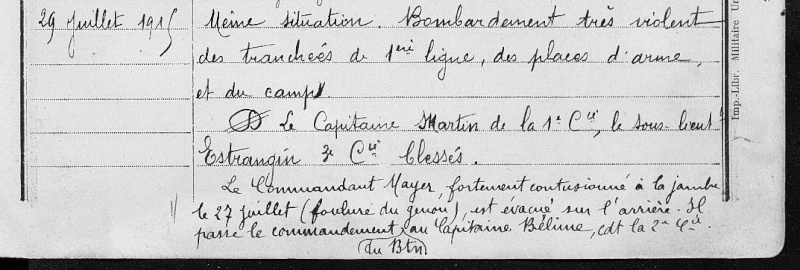 29 Juillet 1915
Même situation. Bombardement très violent
des tranchées de 1ère ligne, des places d'arme,
et du camp
Le Capitaine Martin de la 1e Cie, le sous-lieut
Estrangin 3e Cie blessés.
Le Commandant Mayer, fortement contusionné à la jambe
le 27 juillet (foulure du genou), est évacué sur l'arrière. Il
passe le commandement au Capitaine Bélime, cdt la 2e Cie.
du Btn
Imp.-Libr. Militaire